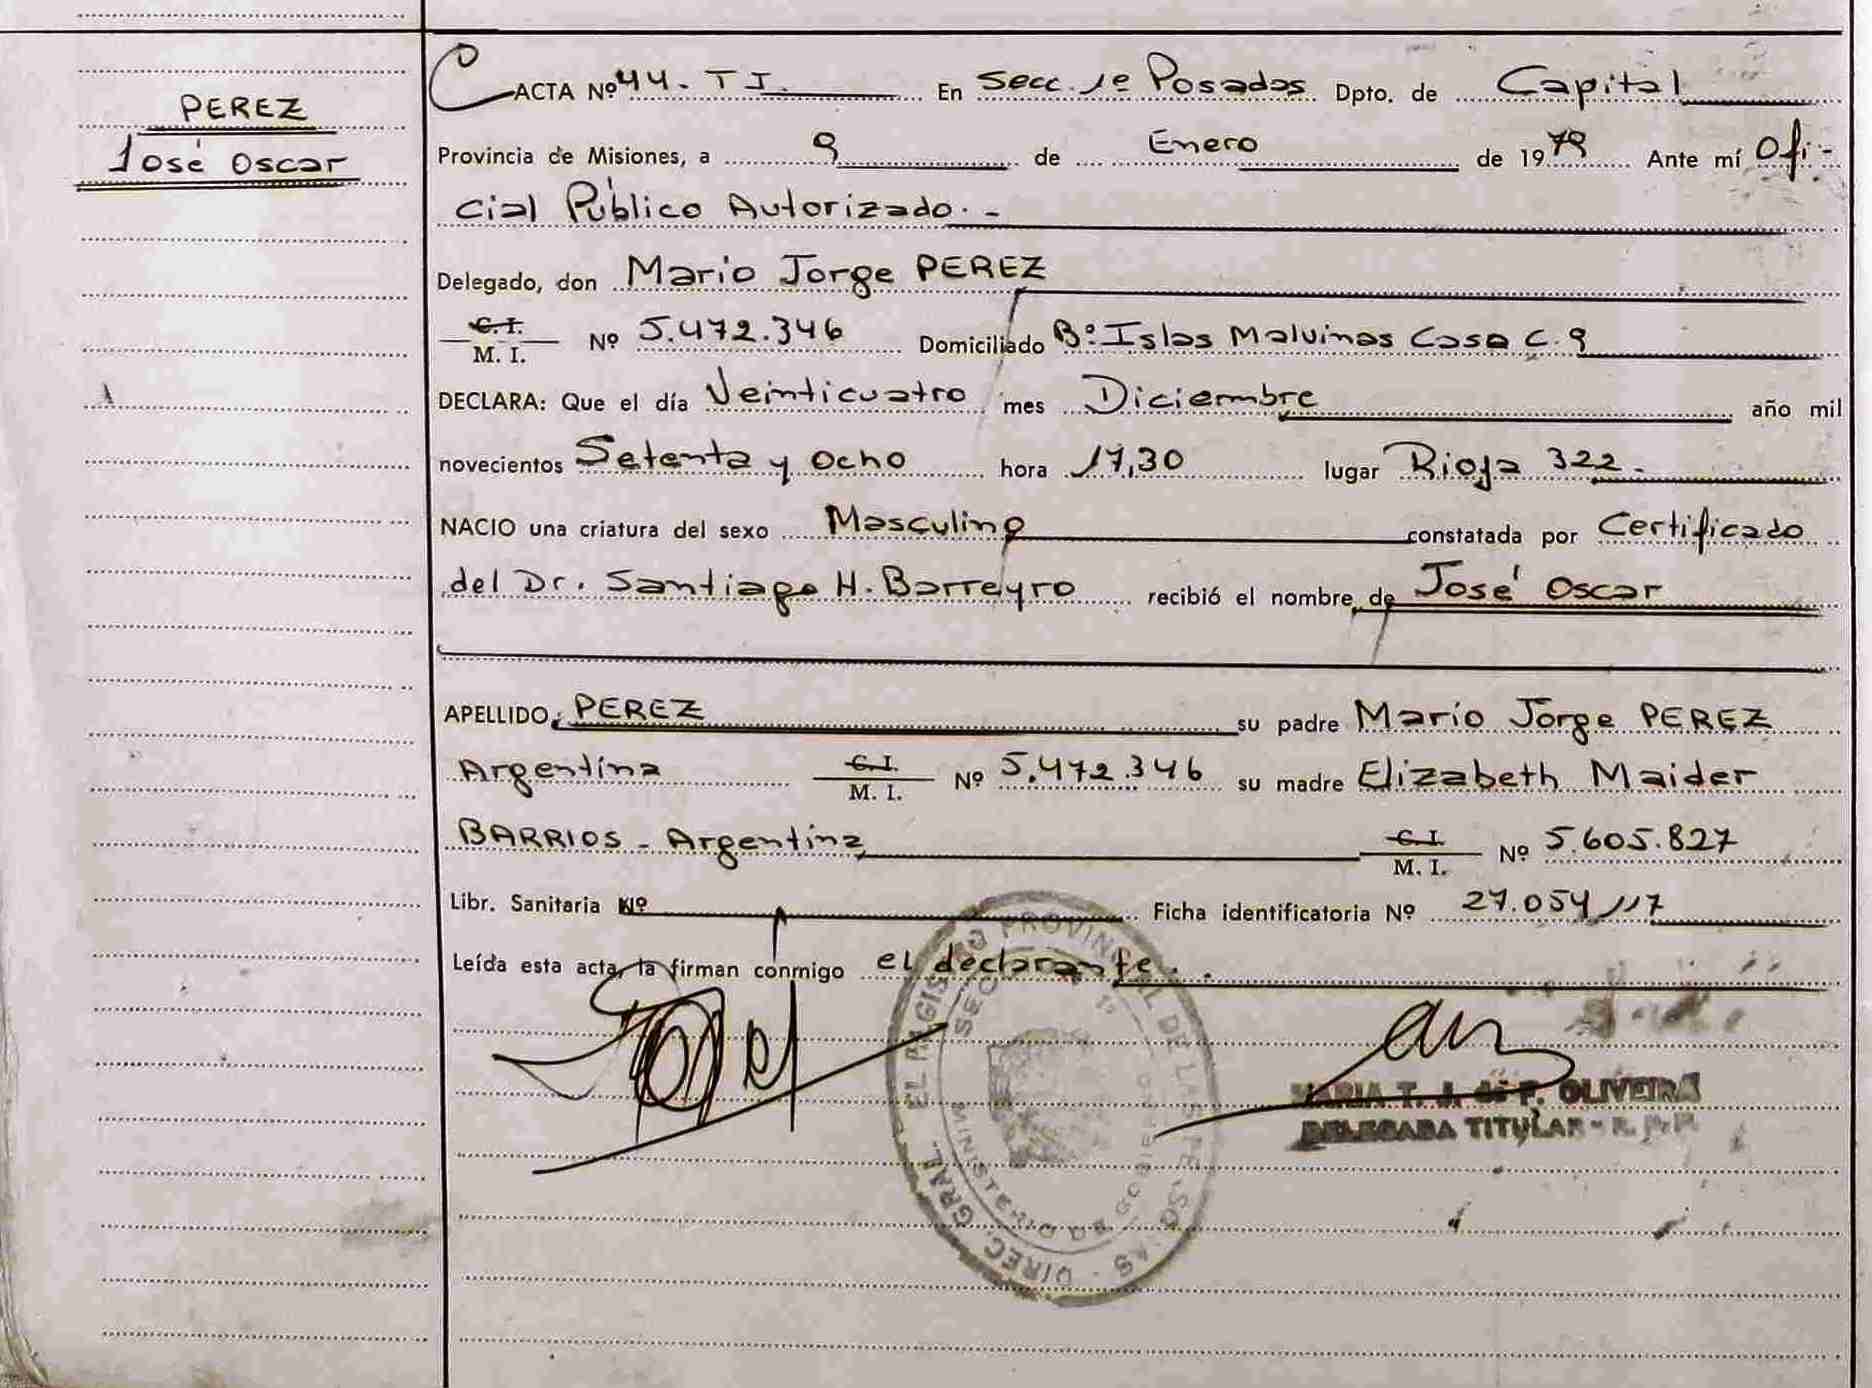 PEREZ
José Oscar
ACTA Nº 44 - T I. En Secc. 1º Posadas Dpto. de Capital
Provincia de Misiones, a 9 de Enero de 1979 Ante mí Ofi-
cial Público Autorizado. -
Delegado, don Mario Jorge PEREZ
C. I.
M. I. Nº 5.472.346 Domiciliado Bº Islas Malvinas Casa C. 9
DECLARA: Que el día Veinticuatro mes Diciembre año mil
novecientos Setenta y Ocho hora 17,30 lugar Rioja 322.-
NACIO una criatura del sexo Masculino constatada por Certificado
del Dr. Santiago H. Barreyro recibió el nombre de José Oscar
APELLIDO PEREZ su padre Mario Jorge PEREZ
Argentina C. I. M. I. Nº 5.472.346 su madre Elizabeth Maider
BARRIOS - Argentina C. I. M. I. Nº 5.605.827
Libr. Sanitaria Nº Ficha identificatoria Nº 27.054.117
Leída esta acta, la firman conmigo el declarante.
DIREC. GRAL. DEL REGISTRO PROVINCIAL DE LAS PERSONAS
MINISTERIO DE GOBIERNO
SECC 1º
MARIA T. J. de F. OLIVEIRA
DELEGADA TITULAR - R. P. P.